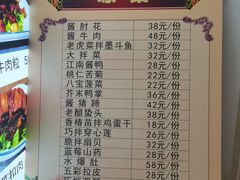 酱肘花 38元/份
酱牛肉 48元/份
老虎菜拌墨斗鱼 32元/份
大拌菜 22元/份
江南酱鸭 32元/份
桃仁苦菊 22元/份
八宝菠菜 22元/份
芥末鸭掌 32元/份
酱猪蹄 42元/份
老醋蛰头 38元/份
香椿苗拌鸡蛋干 28元/份
巧拌穿心莲 26元/份
脆拌扇贝 32元/份
蓝莓山药 22元/份
水爆肚 32元/份
五彩拉皮
牛肉粒